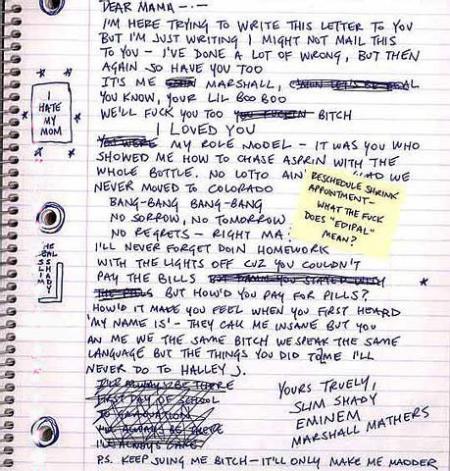 DEAR MAMA -·-
I'M HERE TRYING TO WRITE THIS LETTER TO YOU
BUT I'M JUST WRITING I MIGHT NOT MAIL THIS
TO YOU - I'VE DONE A LOT OF WRONG, BUT THEN
AGAIN SO HAVE YOU TOO
IT'S ME MARSHALL,
YOU KNOW, YOUR LIL BOO BOO
WE'LL FUCK YOU TOO BITCH
I LOVED YOU
YOU WERE MY ROLE MODEL - IT WAS YOU WHO
SHOWED ME HOW TO CHASE ASPRIN WITH THE
WHOLE BOTTLE. NO LOTTO AIN' WE
NEVER MOVED TO COLORADO
BANG-BANG BANG-BANG
NO SORROW, NO TOMORROW
NO REGRETS - RIGHT MA
I'LL NEVER FORGET DOIN HOMEWORK
WITH THE LIGHTS OFF CUZ YOU COULDN'T
PAY THE BILLS
BUT HOW'D YOU PAY FOR PILLS?
HOW'D IT MAKE YOU FEEL WHEN YOU FIRST HEARD
'MY NAME IS' - THEY CALL ME INSANE BUT YOU
AN ME WE THE SAME BITCH WE SPEAK THE SAME
LANGUAGE BUT THE THINGS YOU DID TO ME I'LL
NEVER DO TO HALLEY J.
I'LL ALWAYS BE THERE
FIRST DAY OF SCHOOL
TO GRADUATION
I'LL ALWAYS BE THERE
I'LL ALWAYS CARE
YOURS TRUELY,
SLIM SHADY
EMINEM
MARSHALL MATHERS
P.S. KEEP SUING ME BITCH - IT'LL ONLY MAKE ME MADDER
I
HATE
MY
MOM
RESCHEDULE SHRINK
APPOINTMENT -
WHAT THE FUCK
DOES "EDIPAL"
MEAN?